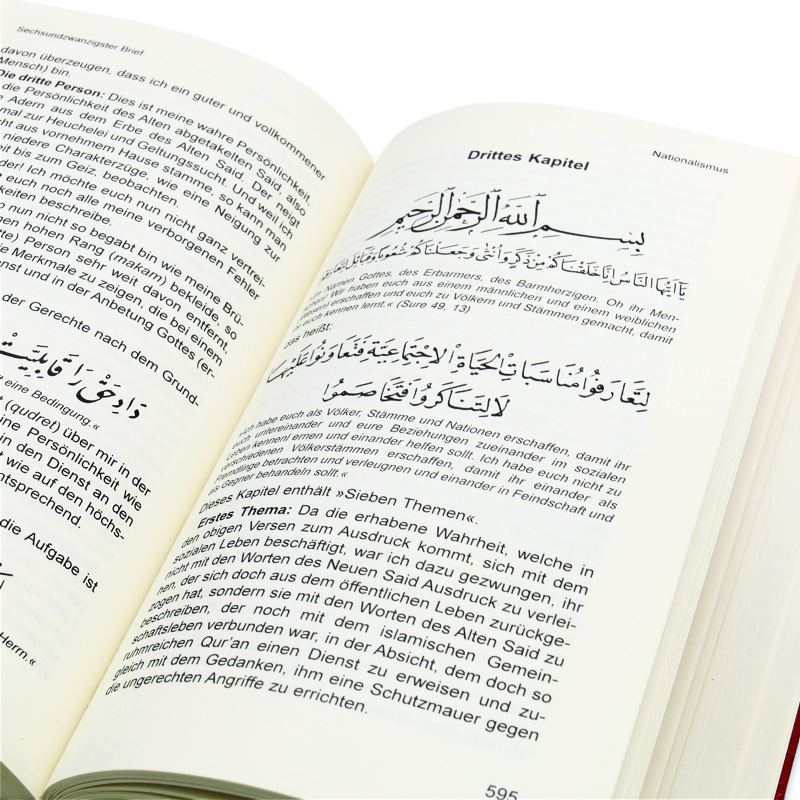 Sechsundzwanzigster Brief
davon überzeugen, dass ich ein guter und vollkommener
Mensch) bin.
Die dritte Person: Dies ist meine wahre Persönlichkeit,
die Persönlichkeit des Alten abgetakelten Said, also
Adern aus dem Erbe des Alten Said. Der neigt
mal zur Heuchelei und Geltungssucht. Und weil ich
ht aus vornehmem Hause stamme, so kann man
niedere Charakterzüge, wie eine Neigung zur
eit bis zum Geiz, beobachten.
der! Ich möchte euch nun nicht ganz vertrei-
euch noch alle meine verborgenen Fehler
keiten beschreibe.
o nun nicht so begabt bin wie meine Brü-
nen hohen Rang (makam) bekleide, so
te) Person sehr weit davon entfernt,
e Merkmale zu zeigen, die bei einem
nst und in der Anbetung Gottes (er-
der Gerechte nach dem Grund-
داد حق را قابلیت
eine Bedingung.“
t (qudret) über mir in der
ne Persönlichkeit wie
in den Dienst an den
t wie auf den höchs-
ntsprechend.
die Aufgabe ist
Herrn.“
Nationalismus
Drittes Kapitel
بِسْمِ اللّٰهِ الرَّحْمٰنِ الرَّحِيمِ
يَا اَيُّهَا النَّاسُ اِنَّا خَلَقْنَاكُمْ مِنْ ذَكَرٍ وَاُنْثٰى وَجَعَلْنَاكُمْ شُعُوبًا وَقَبَائِلَ لِتَعَارَفُوا
Im Namen Gottes, des Erbarmers, des Barmherzigen. Oh ihr Men-
schen! Wir haben euch aus einem männlichen und einem weiblichen
Wesen) erschaffen und euch zu Völkern und Stämmen gemacht, damit
ihr euch kennen lernt.“ (Sure 49, 13)
das heißt:
لِتَعَارَفُوا مُنَاسَبَاتِ الْحَيَاةِ الْاِجْتِمَاعِيَّةِ فَتَعَاوَنُوا عَلَيْهَا
لَا لِتَنَاكَرُوا فَتَخَاصَمُوا
»Ich habe euch als Völker, Stämme und Nationen erschaffen, damit ihr
euch untereinander und eure Beziehungen zueinander im sozialen
Leben kennenlernen und einander helfen sollt. Ich habe euch nicht zu
verschiedenen Völkerstämmen erschaffen, damit ihr einander als
Fremdlinge betrachten und verleugnen und einander in Feindschaft und
als Gegner behandeln sollt.“
Dieses Kapitel enthält »Sieben Themen«.
Erstes Thema: Da die erhabene Wahrheit, welche in
den obigen Versen zum Ausdruck kommt, sich mit dem
sozialen Leben beschäftigt, war ich dazu gezwungen, ihr
nicht mit den Worten des Neuen Said Ausdruck zu verlei-
hen, der sich doch aus dem öffentlichen Leben zurückge-
zogen hat, sondern sie mit den Worten des Alten Said zu
beschreiben, der noch mit dem islamischen Gemein-
schaftsleben verbunden war, in der Absicht, dem doch so
ruhmreichen Qur’an einen Dienst zu erweisen und zu-
gleich mit dem Gedanken, ihm eine Schutzmauer gegen
die ungerechten Angriffe zu errichten.
595